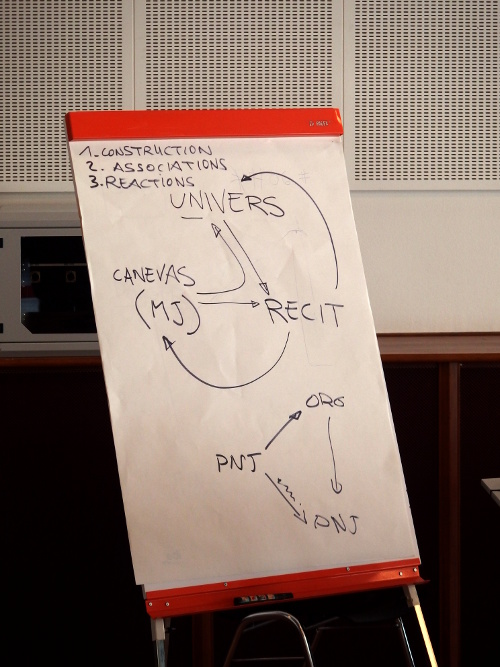 1. CONSTRUCTION
2. ASSOCIATIONS
3. REACTIONS
UNIVERS
CANEVAS
(MJ)
RECIT
ORG
PNJ
PNJ